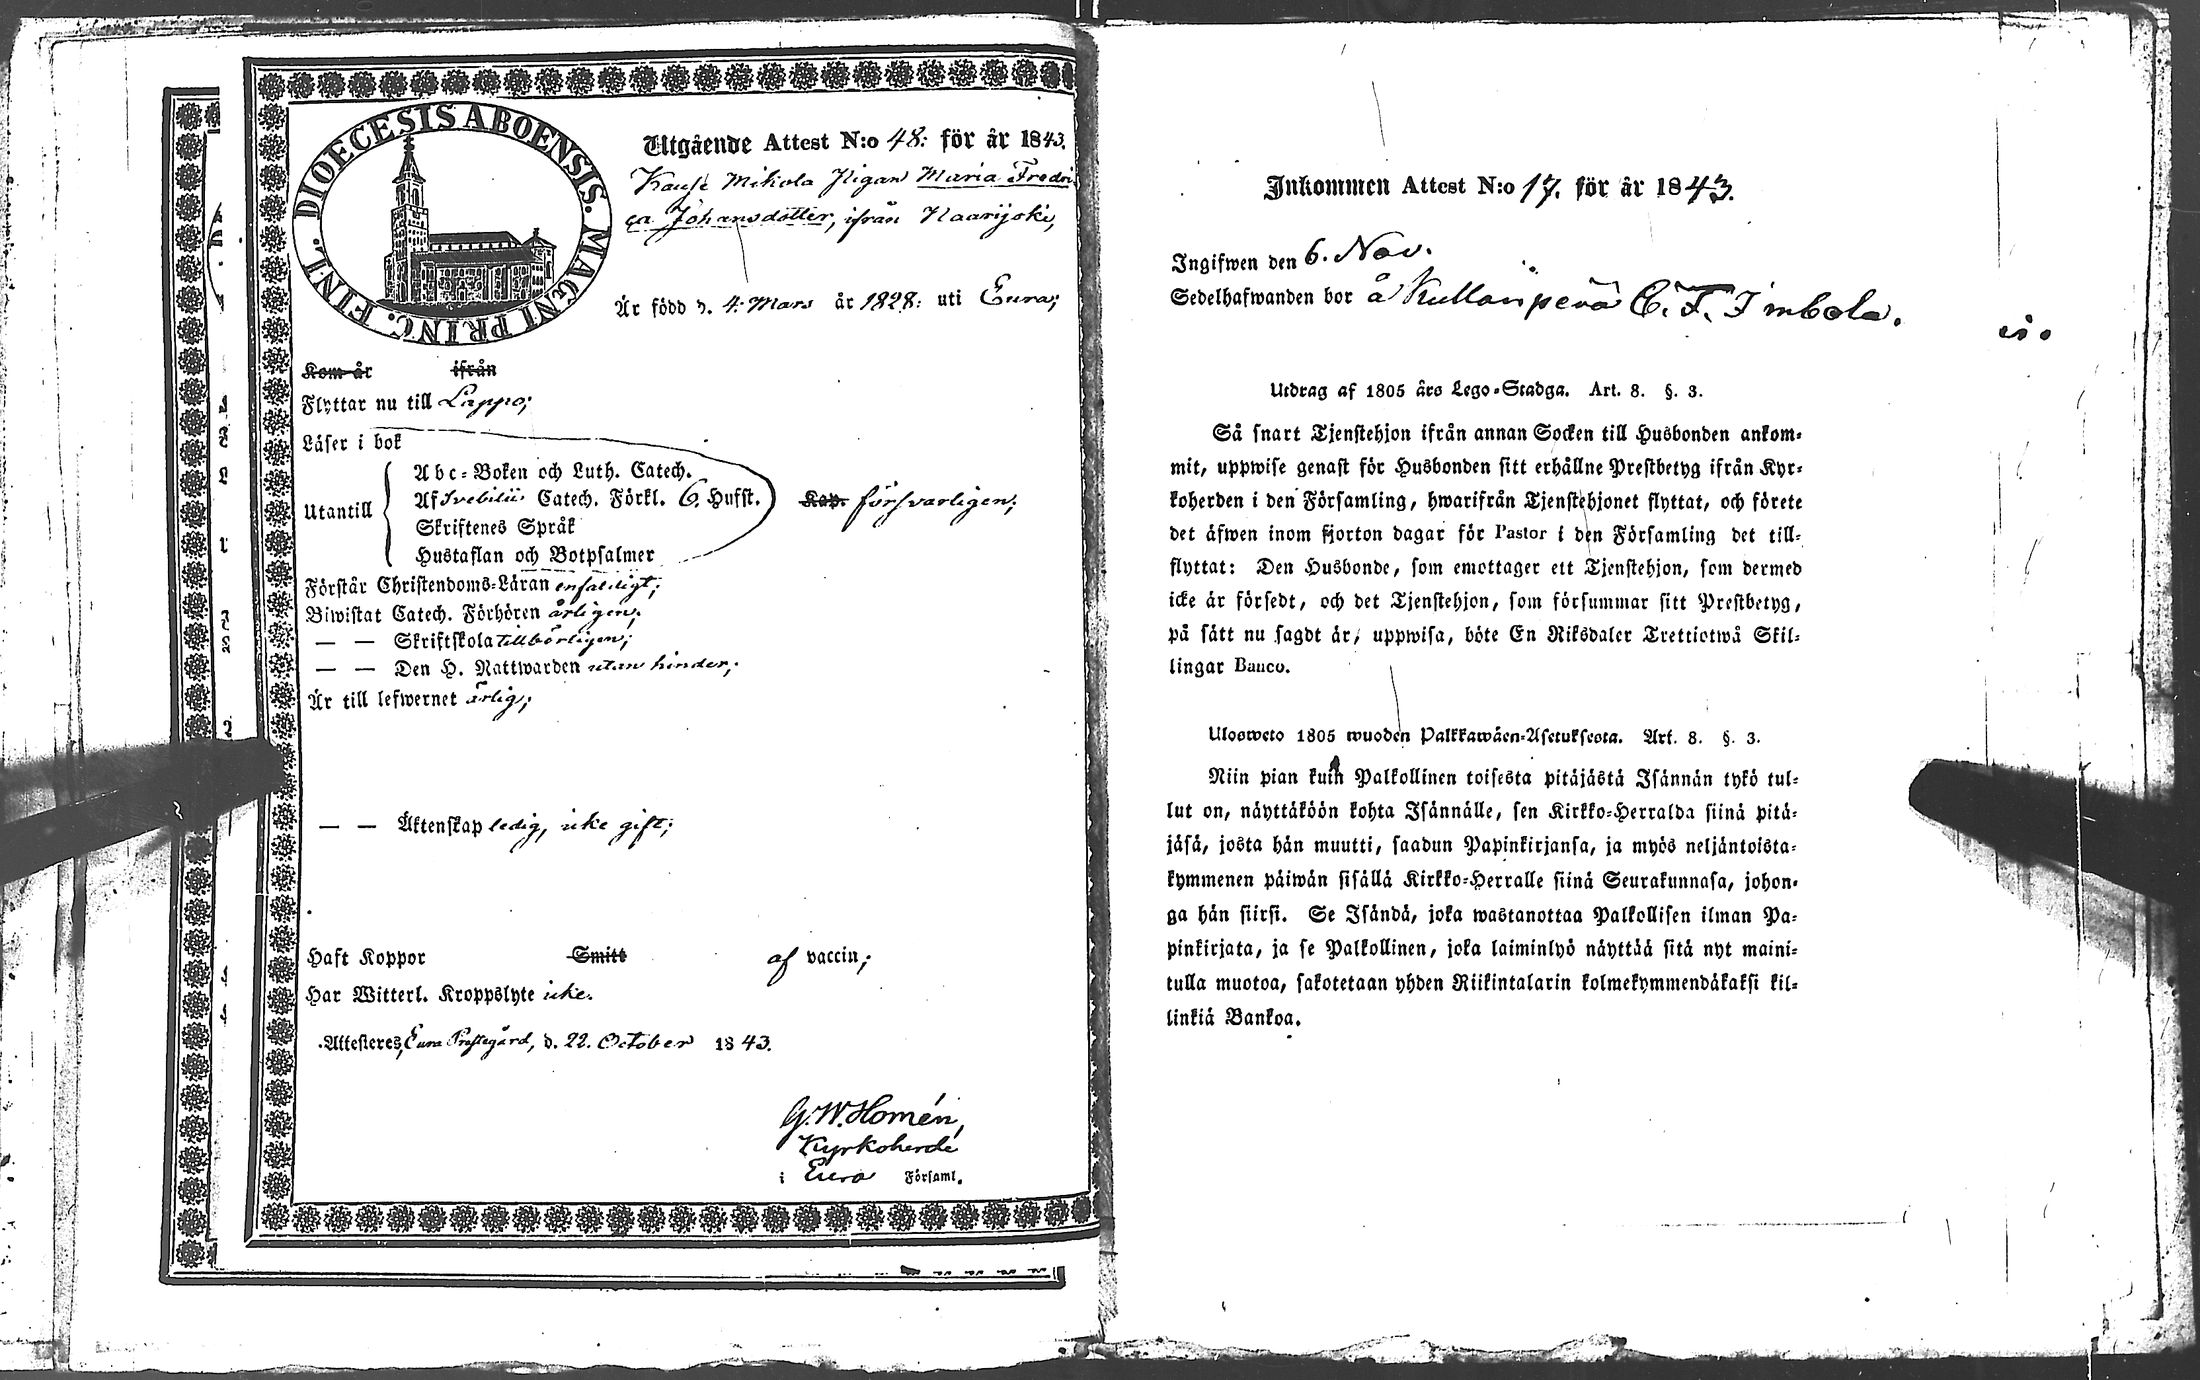 DIOECESIS ABOENSIS. MAGNI PRINC. FINL.
Utgående Attest N:o 48: för år 1843.
Mikola Pigan Maria Fredri
ca Johansdotter, ifrån Naarijoki,
Är född d. 4. Mars år 1828: uti Eura;
Kom år ifrån
Flyttar nu till Lappo;
Läser i bok
Utantill
Abc-Boken och Luth. Catech.
Af Svebilii Catech. Förkl. 6. Hufst. Kap. försvarligen;
Skriftenes Språk
Hustaflan och Botpsalmer
Förstår Christendoms-Läran enfaldigt;
Biwistat Catech. Förhören årligen;
— — Skriftskola tillbörligen;
— — Den H. Nattwarden utan hinder;
Är till lefwernet ärlig;
— — Äktenskap ledig, icke gift;
Haft Koppor Smitt af vaccin;
Har Witterl. Kroppslyte icke.
Attesteres, Eura Prestegård, d. 22. October 1843.
G. W. Homén,
Kyrkoherde
i Eura Församl.
Inkommen Attest N:o 17. för år 1843.
Ingifwen den 6. Nov.
Sedelhafwanden bor å Kullanperä
Utdrag af 1805 års Lego-Stadga. Art. 8. §. 3.
Så snart Tjenstehjon ifrån annan Socken till Husbonden ankom-
mit, uppwise genast för Husbonden sitt erhållne Prestbetyg ifrån Kyr-
koherden i den Församling, hwarifrån Tjenstehjonet flyttat, och förete
det äfwen inom fjorton dagar för Pastor i den Församling det till-
flyttat: Den Husbonde, som emottager ett Tjenstehjon, som dermed
icke är försedt, och det Tjenstehjon, som försummar sitt Prestbetyg,
på sätt nu sagdt är, uppwisa, böte En Riksdaler Trettiotwå Skil-
lingar Banco.
Ulosweto 1805 wuoden Palkkawäen-Asetuksesta. Art. 8. §. 3.
Niin pian kuin Palkollinen toisesta pitäjästä Isännän tykö tul-
lut on, näyttäköön kohta Isännälle, sen Kirkko-Herralda siinä pitä-
jäsä, josta hän muutti, saadun Papinkirjansa, ja myös neljäntoista-
kymmenen päiwän sisällä Kirkko-Herralle siinä Seurakunnasa, johon-
ga hän siirsi. Se Isändä, joka wastanottaa Palkollisen ilman Pa-
pinkirjata, ja se Palkollinen, joka laiminlyö näyttää sitä nyt maini-
tulla muotoa, sakotetaan yhden Riikintalarin kolmekymmendäkaksi kil-
linkiä Bankoa.